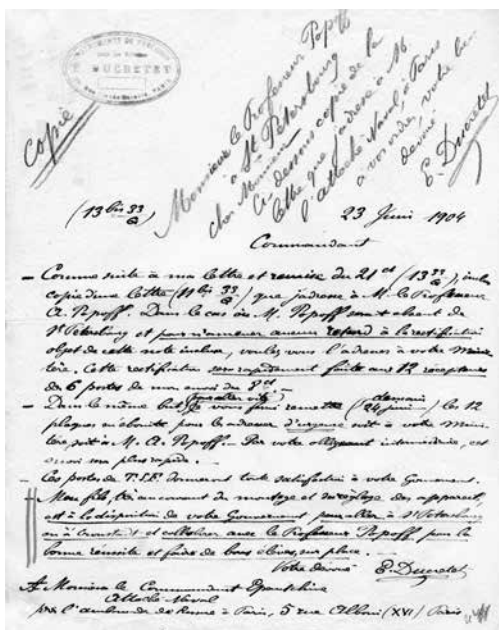 E. DUCRETET
Copie
Monsieur le Professeur Popoff
à St Petersbourg
cher Monsieur
Ci dessous copie de la
lettre que j'adresse à Mr
l'attaché Naval, à Paris
à vos ordres, votre bien
dévoué
E. Ducretet
(13 bis 33)
23 Juin 1904
Commandant
— Comme suite à ma lettre et remise du 21 ct (13 33), inclus
copie d'une lettre (11 bis 33) que j'adresse à Mr le Professeur
A. Popoff. Dans le cas où M. Popoff absent de
St Petersbourg et pour n'amener aucun retard à la rectification
objet de cette note incluse, voulez vous l'adresser à votre Minis-
tère. Cette rectification sera rapidement faite aux 12 récepteurs
des 6 postes de mon envoi du 8 ct —
— Dans le même but, pour aller vite, je vous ferai remettre (demain
24 juin) les 12
plaques en ébonite pour les adresser d'urgence soit à votre Minis-
tère, soit à M. A. Popoff. — Par votre obligeant intermédiaire, ce
sera plus rapide. —
— Ces postes de T.S.F. donneront toute satisfaction à votre Gouvernement.
— Mon fils, très au courant du montage et du réglage des appareils,
est à la disposition de votre Gouvernement pour aller à St Petersbourg
ou à Cronstadt et collaborer avec le Professeur Popoff, pour la
bonne réussite et faire de bons élèves, sur place. —
Votre dévoué E. Ducretet
A Monsieur le Commandant Epantchine
Attaché Naval
à l'ambassade de Russie à Paris, 5 rue Albéric (XVI) Paris